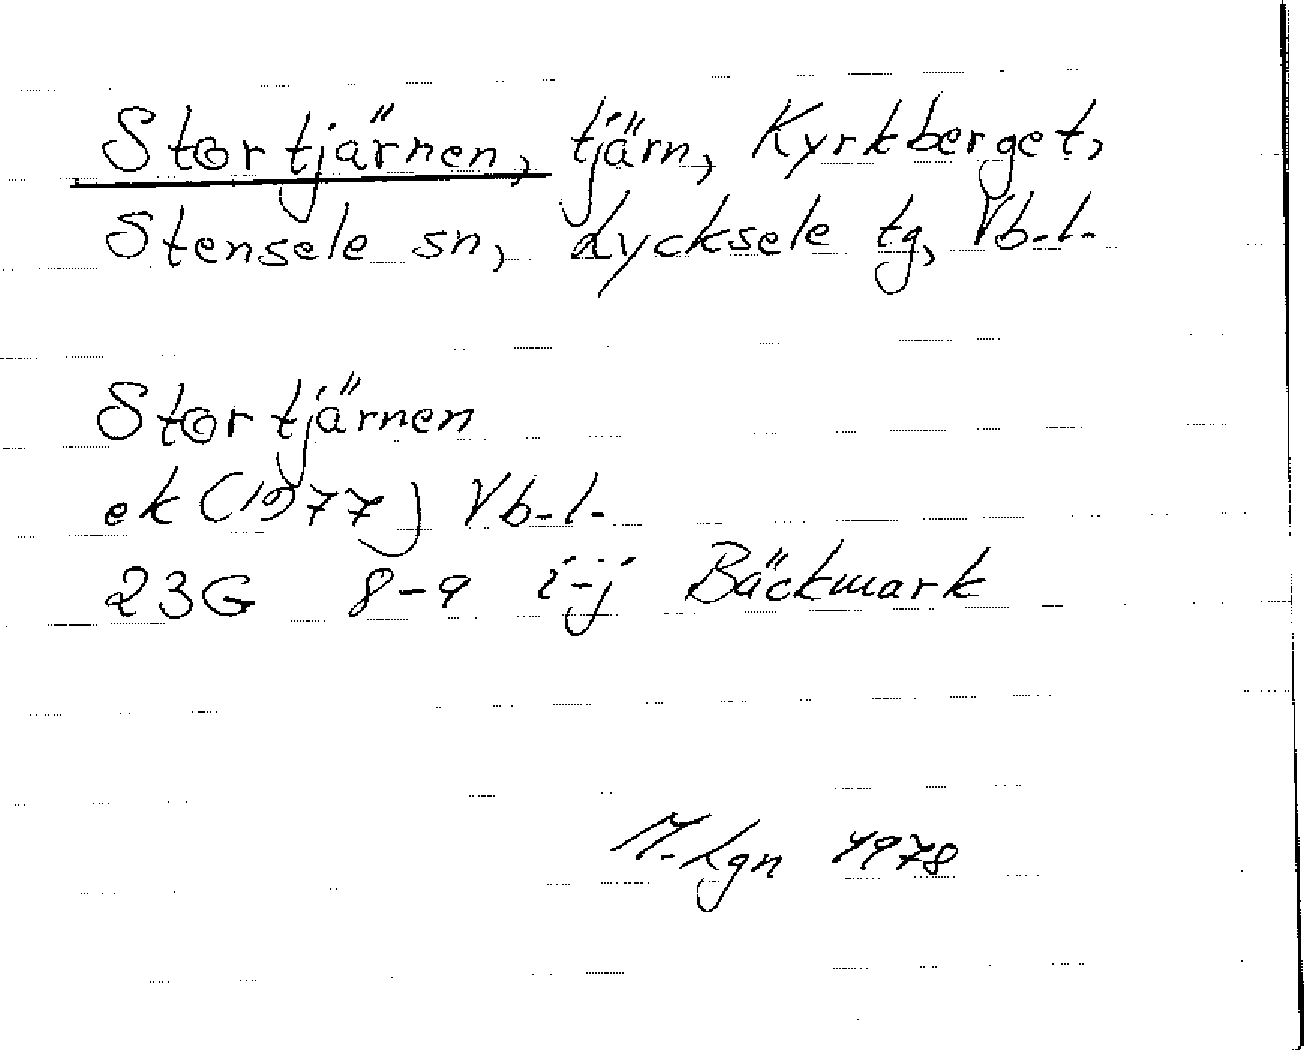 Stortjärnen, tjärn, Kyrkberget,
Stensele sn, Lycksele tg, Vb.l.
Stortjärnen
ek (1977) Vb.l.
23G 8-9 i-j Bäckmark
M.Lgn 1978